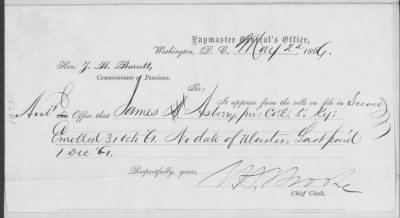 Paymaster General's Office,
Washington, D. C. May 2d 1866.
Hon. J. H. Barrett,
Commissioner of Pensions.
Sir:
It appears from the rolls on file in Second
Aud's Office that James Asbery, pri: Co: E. 5. Ky:
Enrolled 31 Oct. 61. No date of Muster, Last paid
1 Dec. 61.
Respectfully, yours,
Chief Clerk.